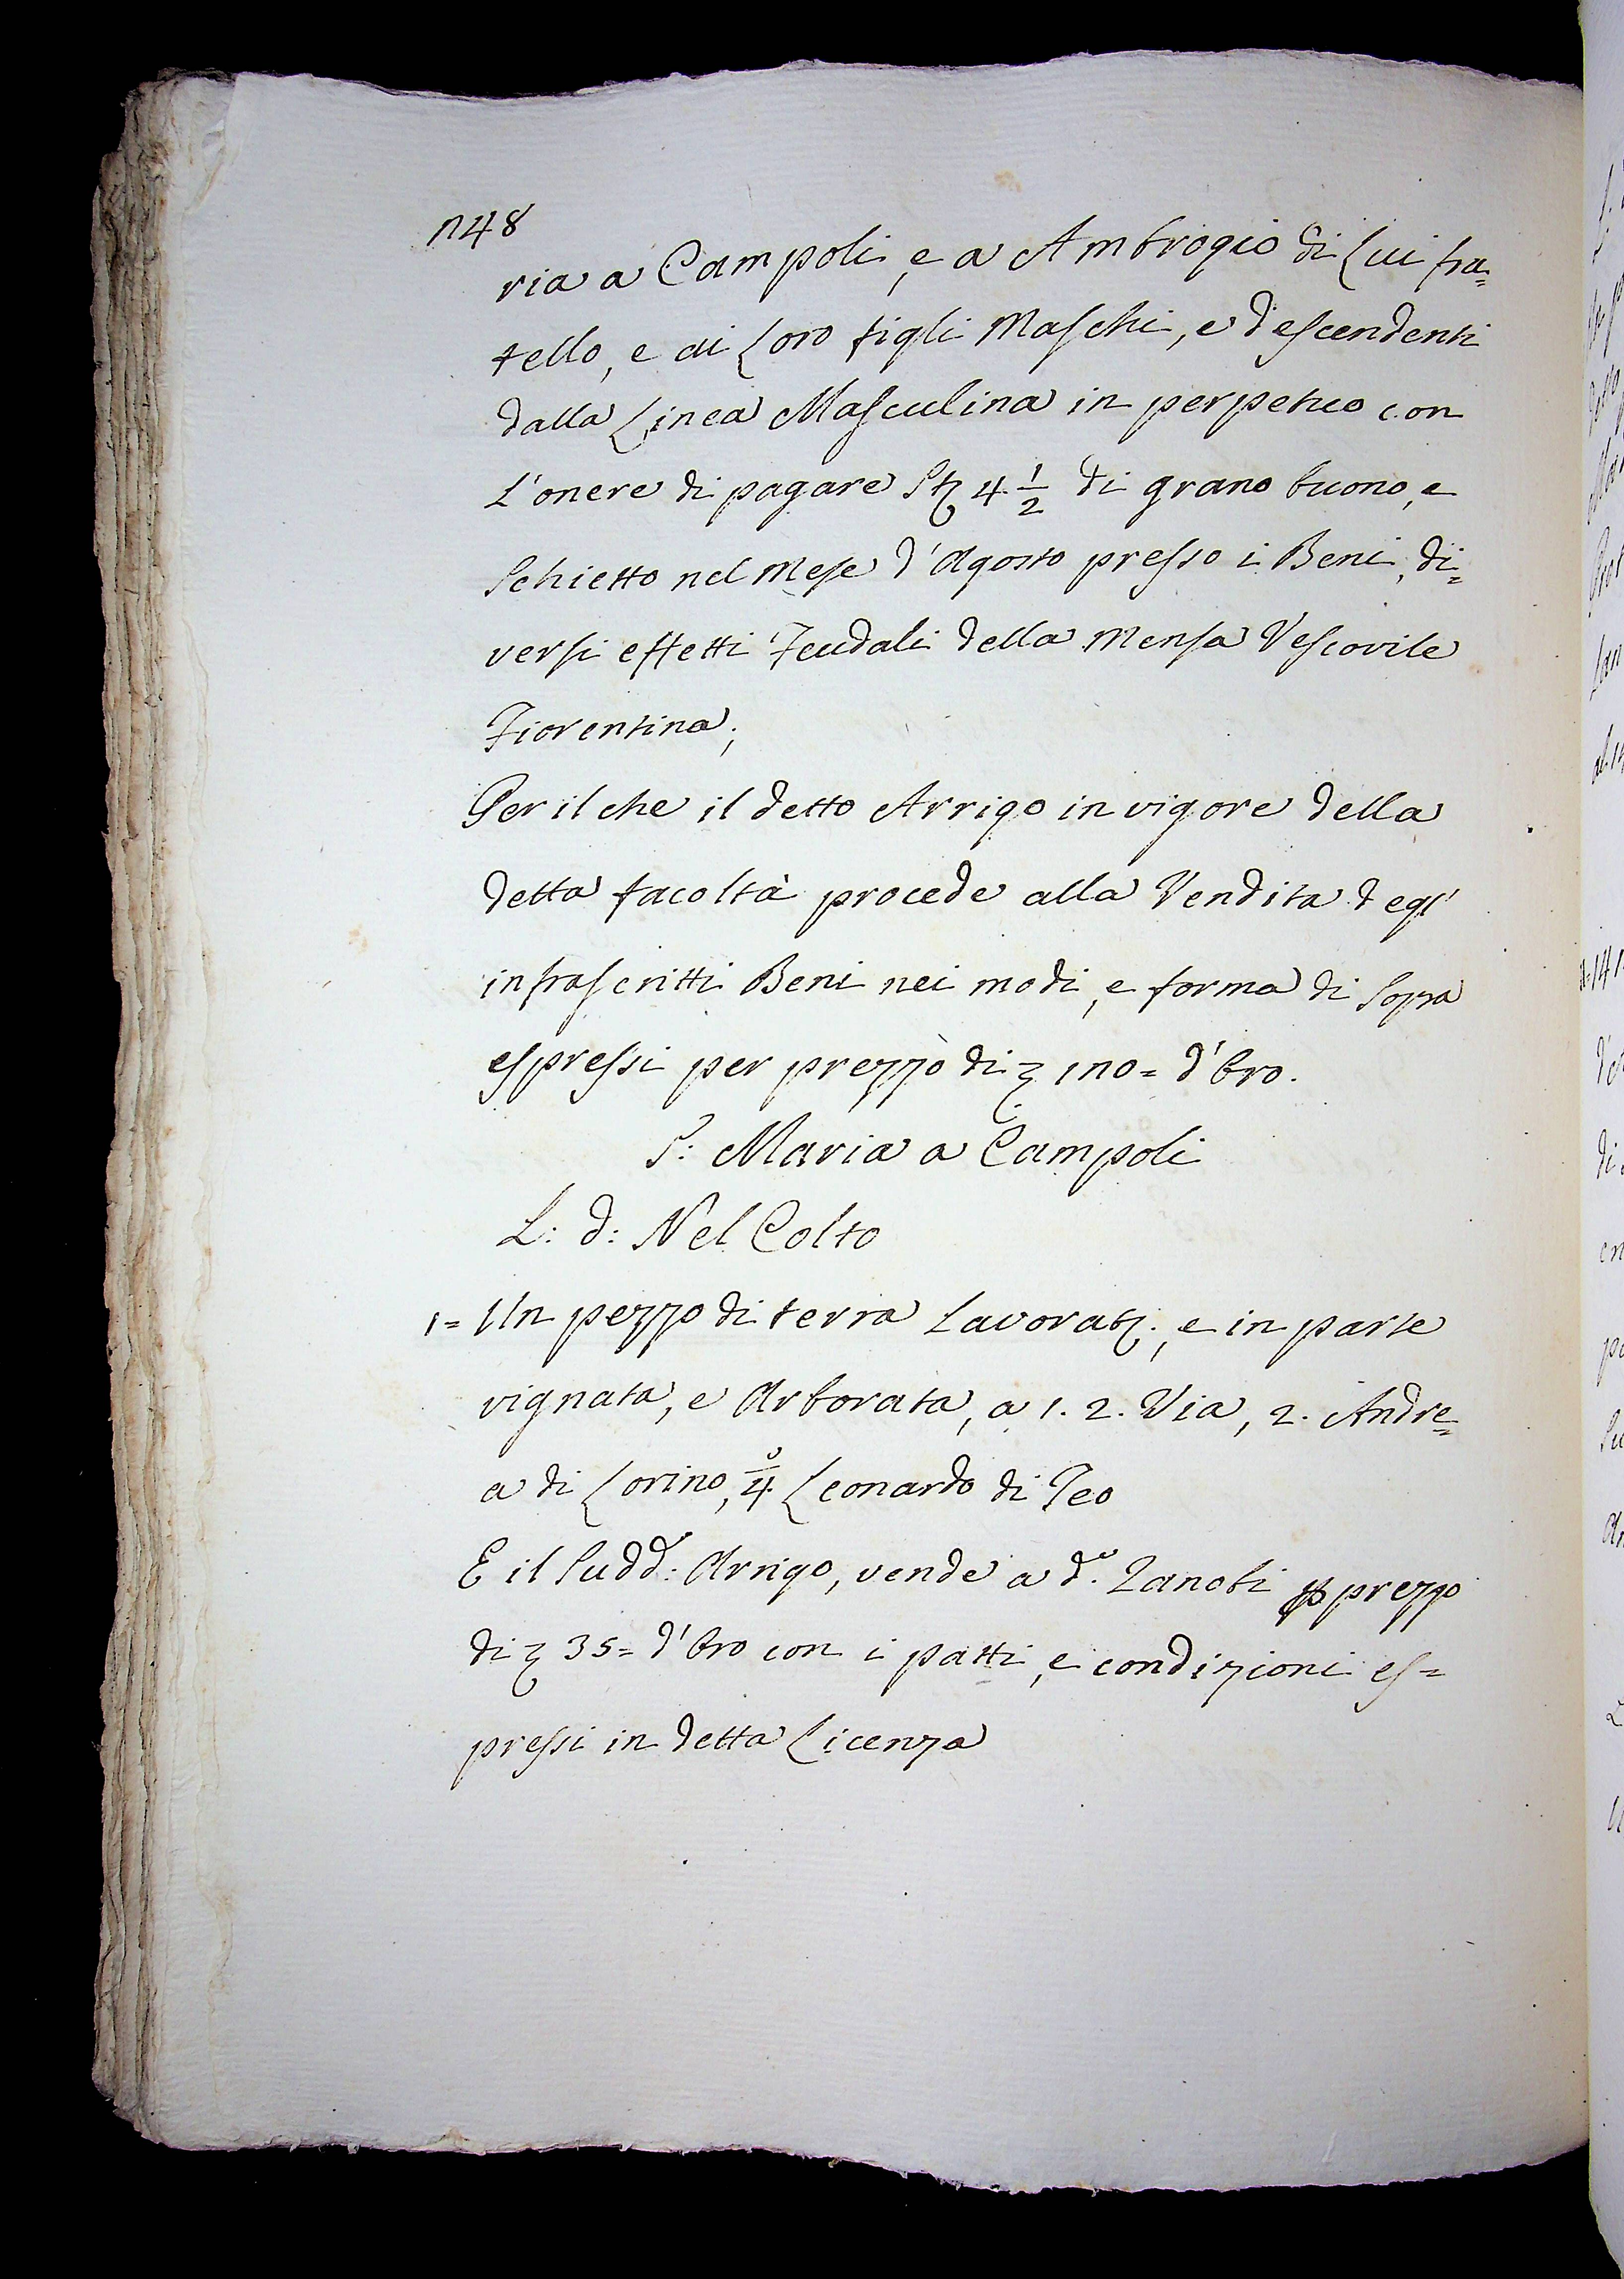 1148
ria a Campoli, e a Ambrogio di Lui fra=
tello, e ai Loro figli Maschi, e descendenti
dalla Linea Masculina in perpetuo con
L'onere di pagare St 4 1/2 di grano buono, e
Schietto nel Mese d'Agosto presso i Beni, di=
versi effetti Feudali della Mensa Vescovile
Fiorentina;
Per il che il detto Arrigo in vigore della
detta facoltà procede alla Vendita degl'
infrascritti Beni nei modi, e forma di Sopra
espressi per prezzo di 110= d'Oro.
S: Maria a Campoli
L: d: Nel Colto
1= Un pezzo di terra Lavorat:, e in parte
vignata, e Arborata, a 1. 2. Via, 2. Andre=
a di Lorino, 4 Leonardo di Teo
E il Sudd: Arrigo, vende a d.o Zanobi p prezzo
di 35= d'Oro con i patti, e condizioni es=
pressi in detta Licenza